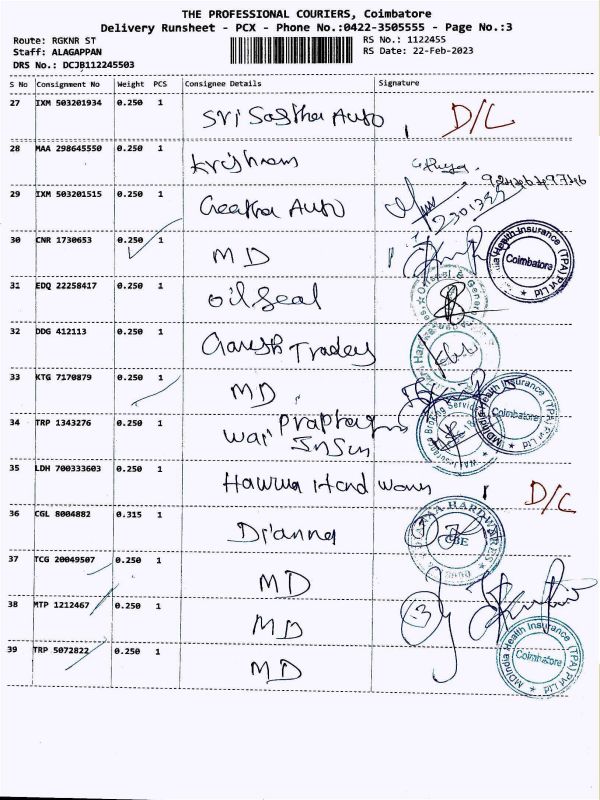 THE PROFESSIONAL COURIERS, Coimbatore
Delivery Runsheet - PCX - Phone No.:0422-3505555 - Page No.:3
Route: RGKNR ST RS No.: 1122455
Staff: ALAGAPPAN RS Date: 22-Feb-2023
DRS No.: DCJB112245503
S No Consignment No Weight PCS Consignee Details Signature
27 IXM 503201934 0.250 1 Sri Sastha Auto D/C
28 MAA 298645550 0.250 1 Krishnam
29 IXM 503201515 0.250 1 Geetha Auto
30 CNR 1730653 0.250 1 MD
MDIndia Health Insurance (TPA) Pvt Ltd Coimbatore
31 EDQ 22258417 0.250 1 Oil Seal
32 DDG 412113 0.250 1 Ganesh Traders
33 KTG 7170879 0.250 1 MD
MDIndia Health Insurance (TPA) Pvt Ltd Coimbatore
34 TRP 1343276 0.250 1
35 LDH 700333603 0.250 1 D/C
36 CGL 8004882 0.315 1 Dianna
HARDWARES CBE
37 TCG 20049507 0.250 1 MD
38 MTP 1212467 0.250 1 MD
39 TRP 5072822 0.250 1 MD
MDIndia Health Insurance (TPA) Pvt Ltd Coimbatore